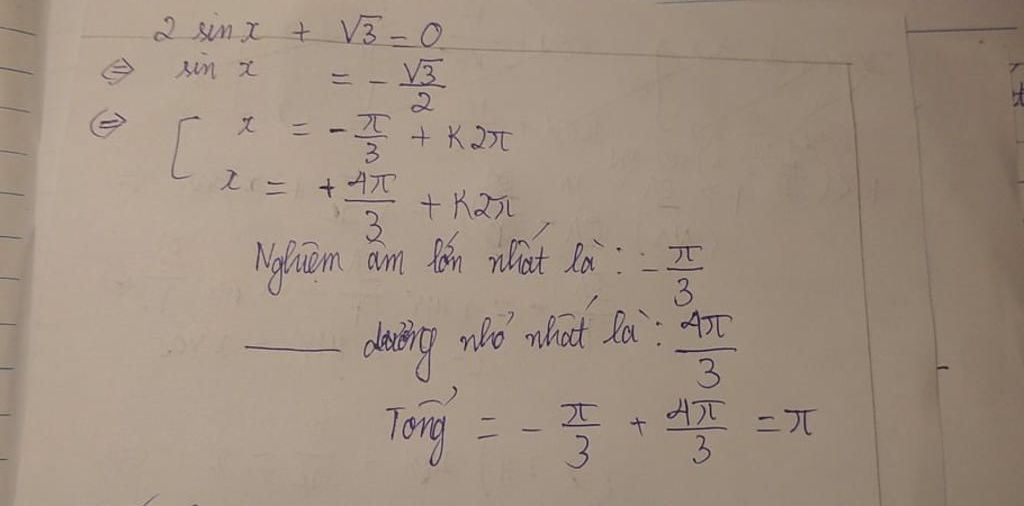 2 sin x + √3 = 0
⇔ sin x = - √3/2
⇔ [ x = - π/3 + K2π
x = + 4π/3 + K2π
Nghiệm âm lớn nhất là: - π/3
—— dương nhỏ nhất là: 4π/3
Tổng = - π/3 + 4π/3 = π